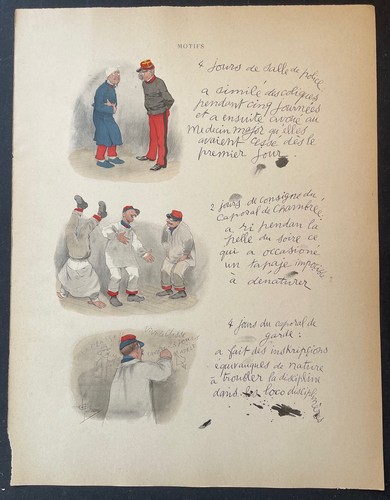 MOTIFS
4 jours de salle de police
a similé des coliques
pendant cinq journées
et a ensuite avoué au
Medecin major qu'elles
avaient cessé dès le
premier jour.
2 jours de consigne du
Caporal de Chambrée
a ri pendan la
pelle du soire ce
qui a occasioné
un tapage imposible
à denaturer
4 jours du caporal de
garde:
a fait des inskriptions
équivauques de nature
à troubler la discipline
dans les loco disciplinères